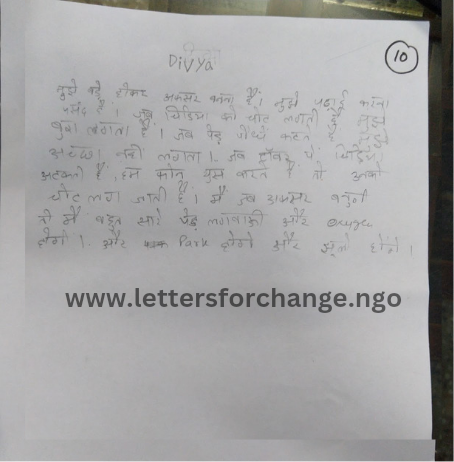 Divya
10
मुझे बड़े होकर अफसर बनना है। मुझे पढाई करना
पसंद है। जब चिडिया को चोट लगती है मुझे
बुरा लगता है। जब पेड़ पौधे कटते है मुझे
अच्छा नही लगता। जब टॉवर पे चिडिया
अटकती है। हम फोन यूस करते है तो उनको
चोट लग जाती है। मैं जब अफसर बनुगी
तो मैं बहुत सारे पेड़ लगवाऊगी और
होगी। और Park होगे और झूले होंगे।
www.lettersforchange.ngo